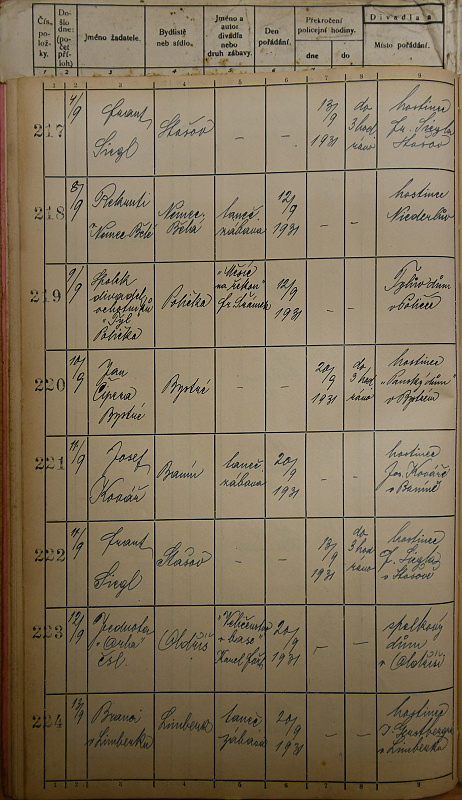 Čís.
po-
ložky.
Do-
šlo
dne:
(po-
čet
pří-
loh)
Jméno žadatele.
Bydliště
neb sídlo.
Jméno a
autor
divadla
nebo
druh zábavy.
Den
pořádání.
Překročení
policejní hodiny.
dne
do
Divadla a
Místo pořádání.
1 2 3 4 5 6 7 8 9
1 2 3 4 5 6 7 8 9
217
4/9
Frant.
Siegl
Stašov
–
–
13/9
1931
do
3 hod
ráno
hostinec
Fr. Siegla
Stašov
218
8/9
Rekruti
Němec. Bělé
Němec.
Bělá
taneč.
zábava
12/9
1931
–
–
hostinec
219
9/9
Spolek
divadel.
ochotníků
"Tyl"
Polička
Polička
"Měsíc
nad řekou"
Fr. Šrámek
12/9
1931
–
–
Tylův dům
v Poličce
220
10/9
Jan
Bystré
Bystré
–
–
20/9
1931
do
3 hod
ráno
hostinec
"Panský dům"
v Bystrém
221
11/9
Josef
Kovář
Banín
taneč.
zábava
20/9
1931
–
–
hostinec
Jos. Kováře
v Baníně
222
11/9
Frant.
Siegl
Stašov
–
–
13/9
1931
do
3 hod
ráno
hostinec
F. Siegla
v Stašově
223
12/9
Jednota
"Orla"
čsl.
Oldřiš
20/9
1931
–
–
spolkový
dům
v Oldřiši
224
13/9
Branci
z Limberka
Limberk
taneč.
zábava
20/9
1931
–
–
hostinec
v Limberku
1 2 3 4 5 6 7 8 9